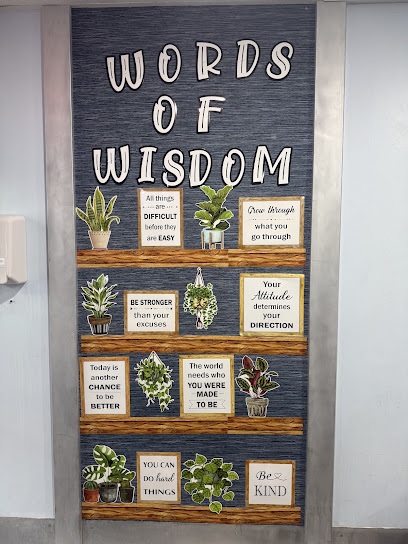 WORDS
OF
WISDOM
All things
are
DIFFICULT
before they
are EASY
Grow through
what you
go through
BE STRONGER
than your
excuses
Your
Attitude
determines
your
DIRECTION
Today is
another
CHANCE
to be
BETTER
The world
needs who
YOU WERE
MADE
TO BE
YOU CAN
DO hard
THINGS
Be
KIND